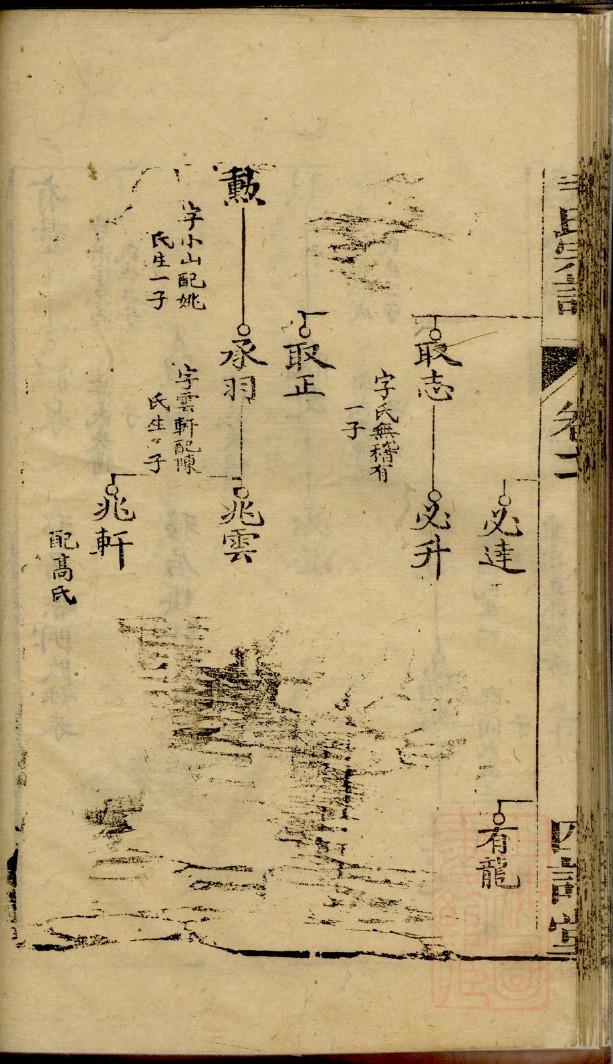 必達
有龍
取志
字氏無稽有
一子
必升
取正
勲
字小山配姚
氏生一子
承羽
字雲軒配陳
氏生二子
兆雲
兆軒
配高氏